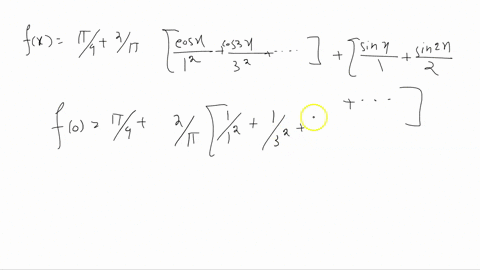 f(x) = π/4 + 2/π [cosx/1² + cos3x/3² + ····] + [sinx/1 + sin2x/2 + ···]
f(0) = π/4 + 2/π [1/1² + 1/3² +